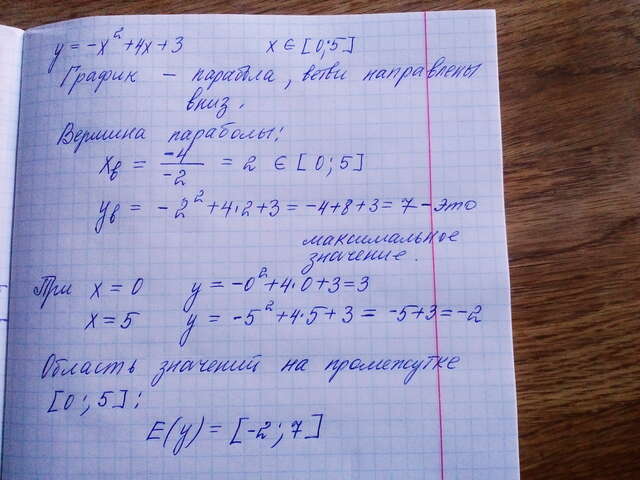 y = -x² + 4x + 3 x ∈ [0; 5]
График - парабола, ветви направлены
вниз.
Вершина параболы:
xв = -4/-2 = 2 ∈ [0; 5]
yв = -2² + 4·2 + 3 = -4+8+3 = 7 - это
максимальное
значение.
При x = 0 y = -0² + 4·0 + 3 = 3
x = 5 y = -5² + 4·5 + 3 = -5+3 = -2
Область значений на промежутке
[0; 5]:
E(y) = [-2; 7]